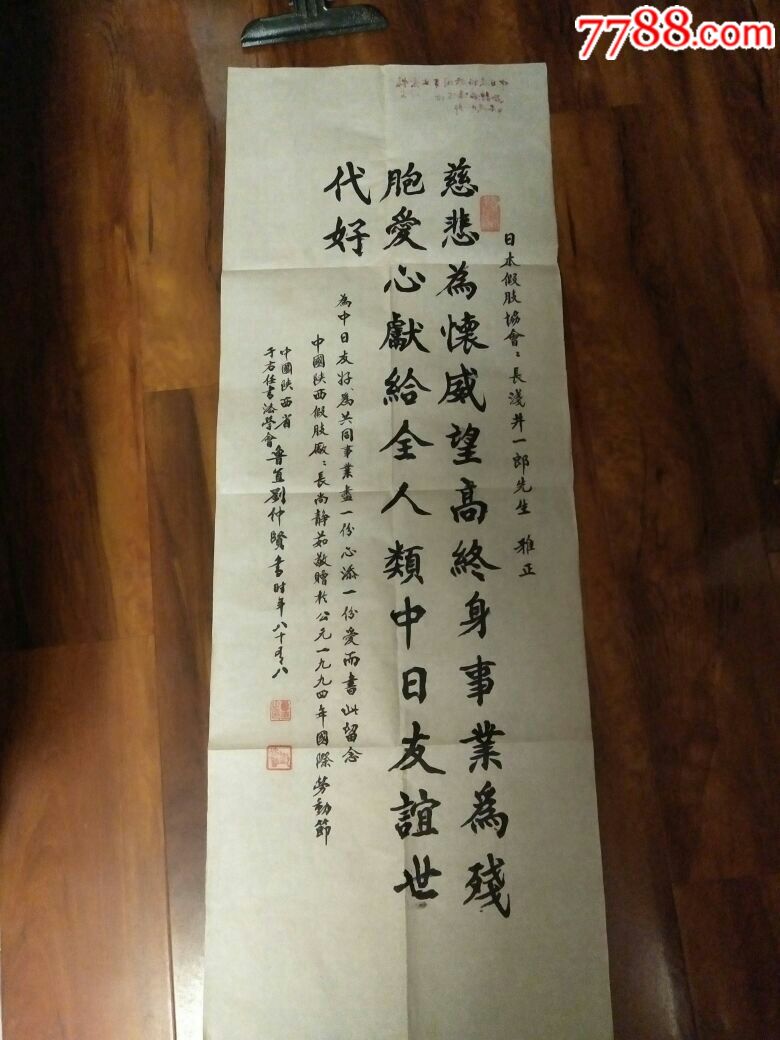 7788.com
日本假肢協會〻長淺井一郎先生 雅正
慈悲為懷威望高終身事業為殘
胞愛心獻給全人類中日友誼世
代好
為中日友好為共同事業盡一份心添一份愛而書此留念
中國陝西假肢廠〻長尚靜茹敬贈於公元一九九四年國際勞動節
中國陝西省
于右任書法學會
魯直劉仲賢書时年八十有八